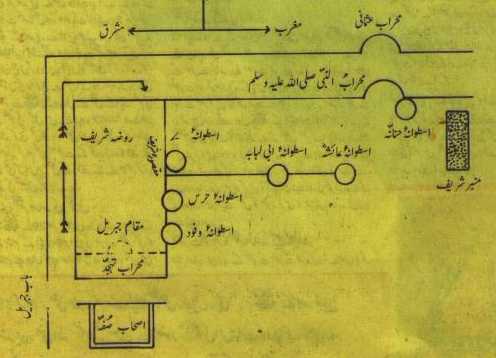 مغرب
مشرق
محراب عثمانی
محراب النبی صلی اللہ علیہ وسلم
اسطوانۂ حنانہ
منبر شریف
روضہ شریف
اسطوانۂ
اسطوانۂ ابی لبابہ
اسطوانۂ عائشہؓ
اسطوانۂ حرس
اسطوانۂ وفود
مقام جبریل
محراب تہجد
باب جبریل
اصحاب صُفہ